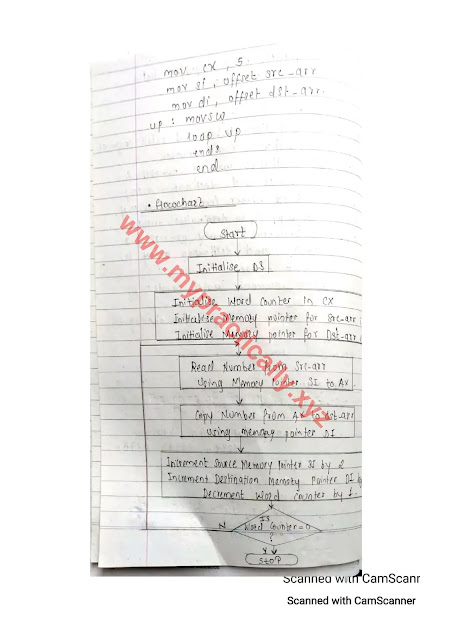 mov cx, 5
mov si, offset src_arr
mov di, offset dst_arr.
up : movsw
loop up
ends
end
• flowchart
Start
Initialise DS
Initialise Word Counter in CX
Initialise Memory pointer for Src-arr
Initialise Memory pointer for Dst-arr
Read Number from Src-arr
Using Memory Pointer SI to Ax.
Copy Number from Ax to Dst-arr
using memory pointer DI
Increment Source Memory Pointer SI by 2
Increment Destination Memory Pointer DI by
Decrement Word Counter by 1.
Is
N Word Counter=0
?
Y
STOP
www.mypractically.xyz
Scanned with CamScanr
Scanned with CamScanner